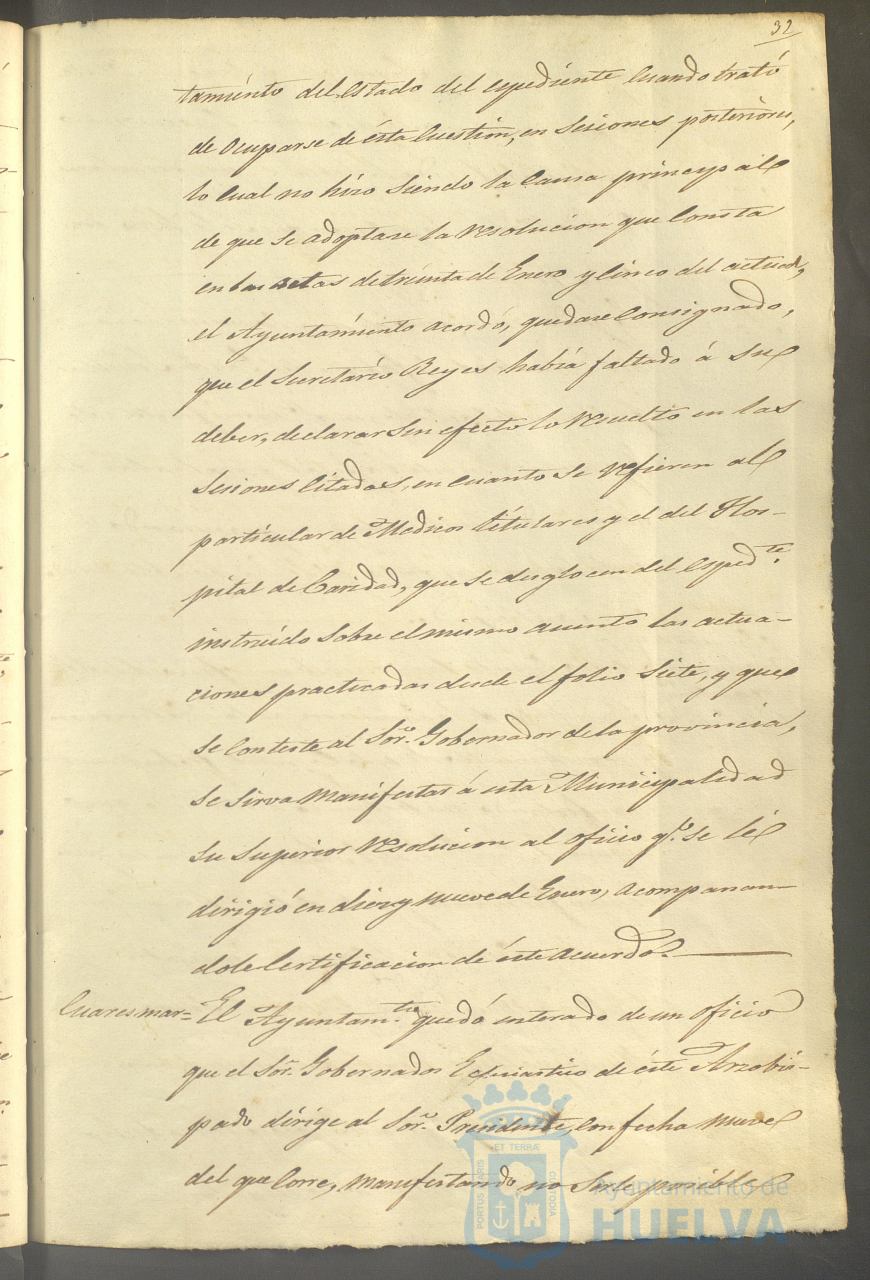 32
tamiento del estado del espediente cuando trató
de ocuparse de ésta cuestion, en sesiones posteriores,
lo cual no hizo siendo la causa principal
de que se adoptase la resolucion que consta
en las actas de treinta de Enero y cinco del actual,
el Ayuntamiento acordó, quedase consignado,
que el Secretario Reyes habia faltado á su
deber, declarar sin efecto lo resuelto en las
sesiones citadas, en cuanto se refieren al
particular de Medicos titulares y el del Hos-
pital de Caridad, que se desglocen del esped.te
instruido sobre el mismo asunto las actua-
ciones practicadas desde el folio siete, y que
se conteste al Sor. Gobernador de la provincia,
se sirva manifestar á esta Municipalidad
su superior resolucion al oficio q.e se lé
dirigió en diez y nueve de Enero, acompanan-
dole certificacion de éste acuerdo.
Cuaresmar= El Ayuntam.to quedó enterado de un oficio
que el Sor. Gobernador Eclesiastico de éste Arzobis-
pado dirige al Sor. Presidente, con fecha nueve
del que corre, manifestando no serle posible
PORTUS MARIS
ET TERRÆ
CUSTODIA
Ayuntamiento de
HUELVA